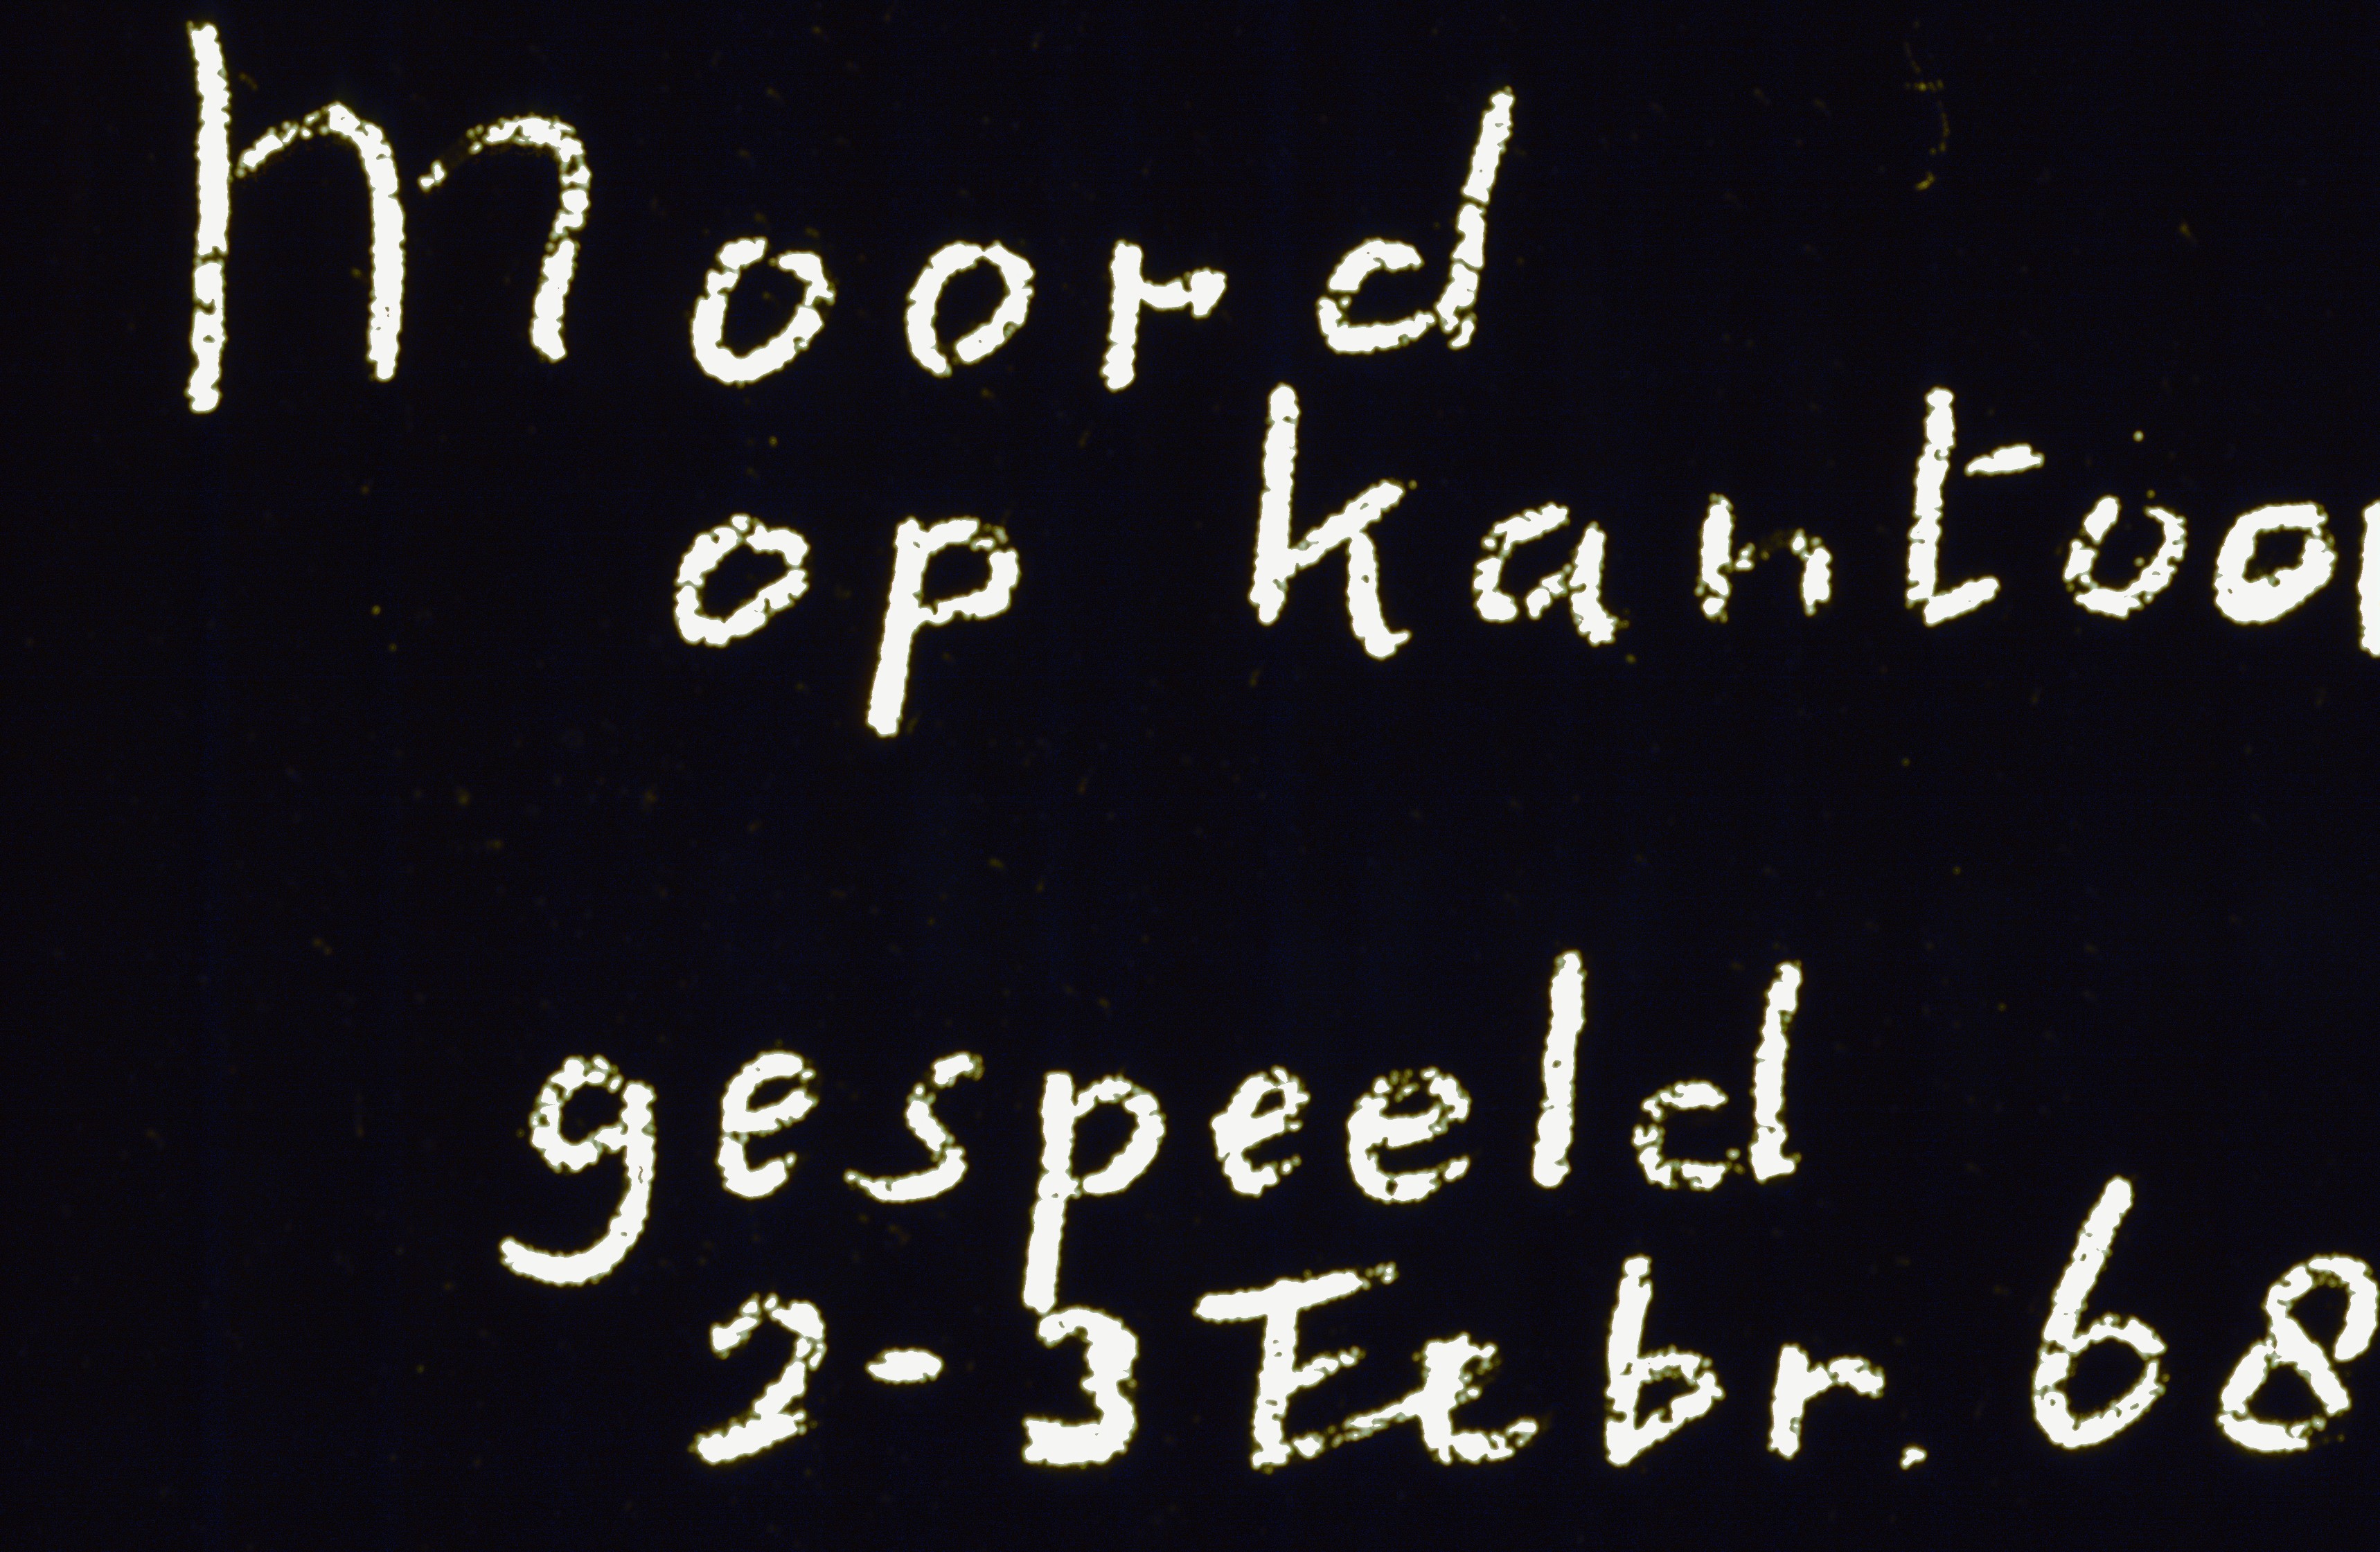 Moord
op kantoor
gespeeld
2-3 Febr. 68